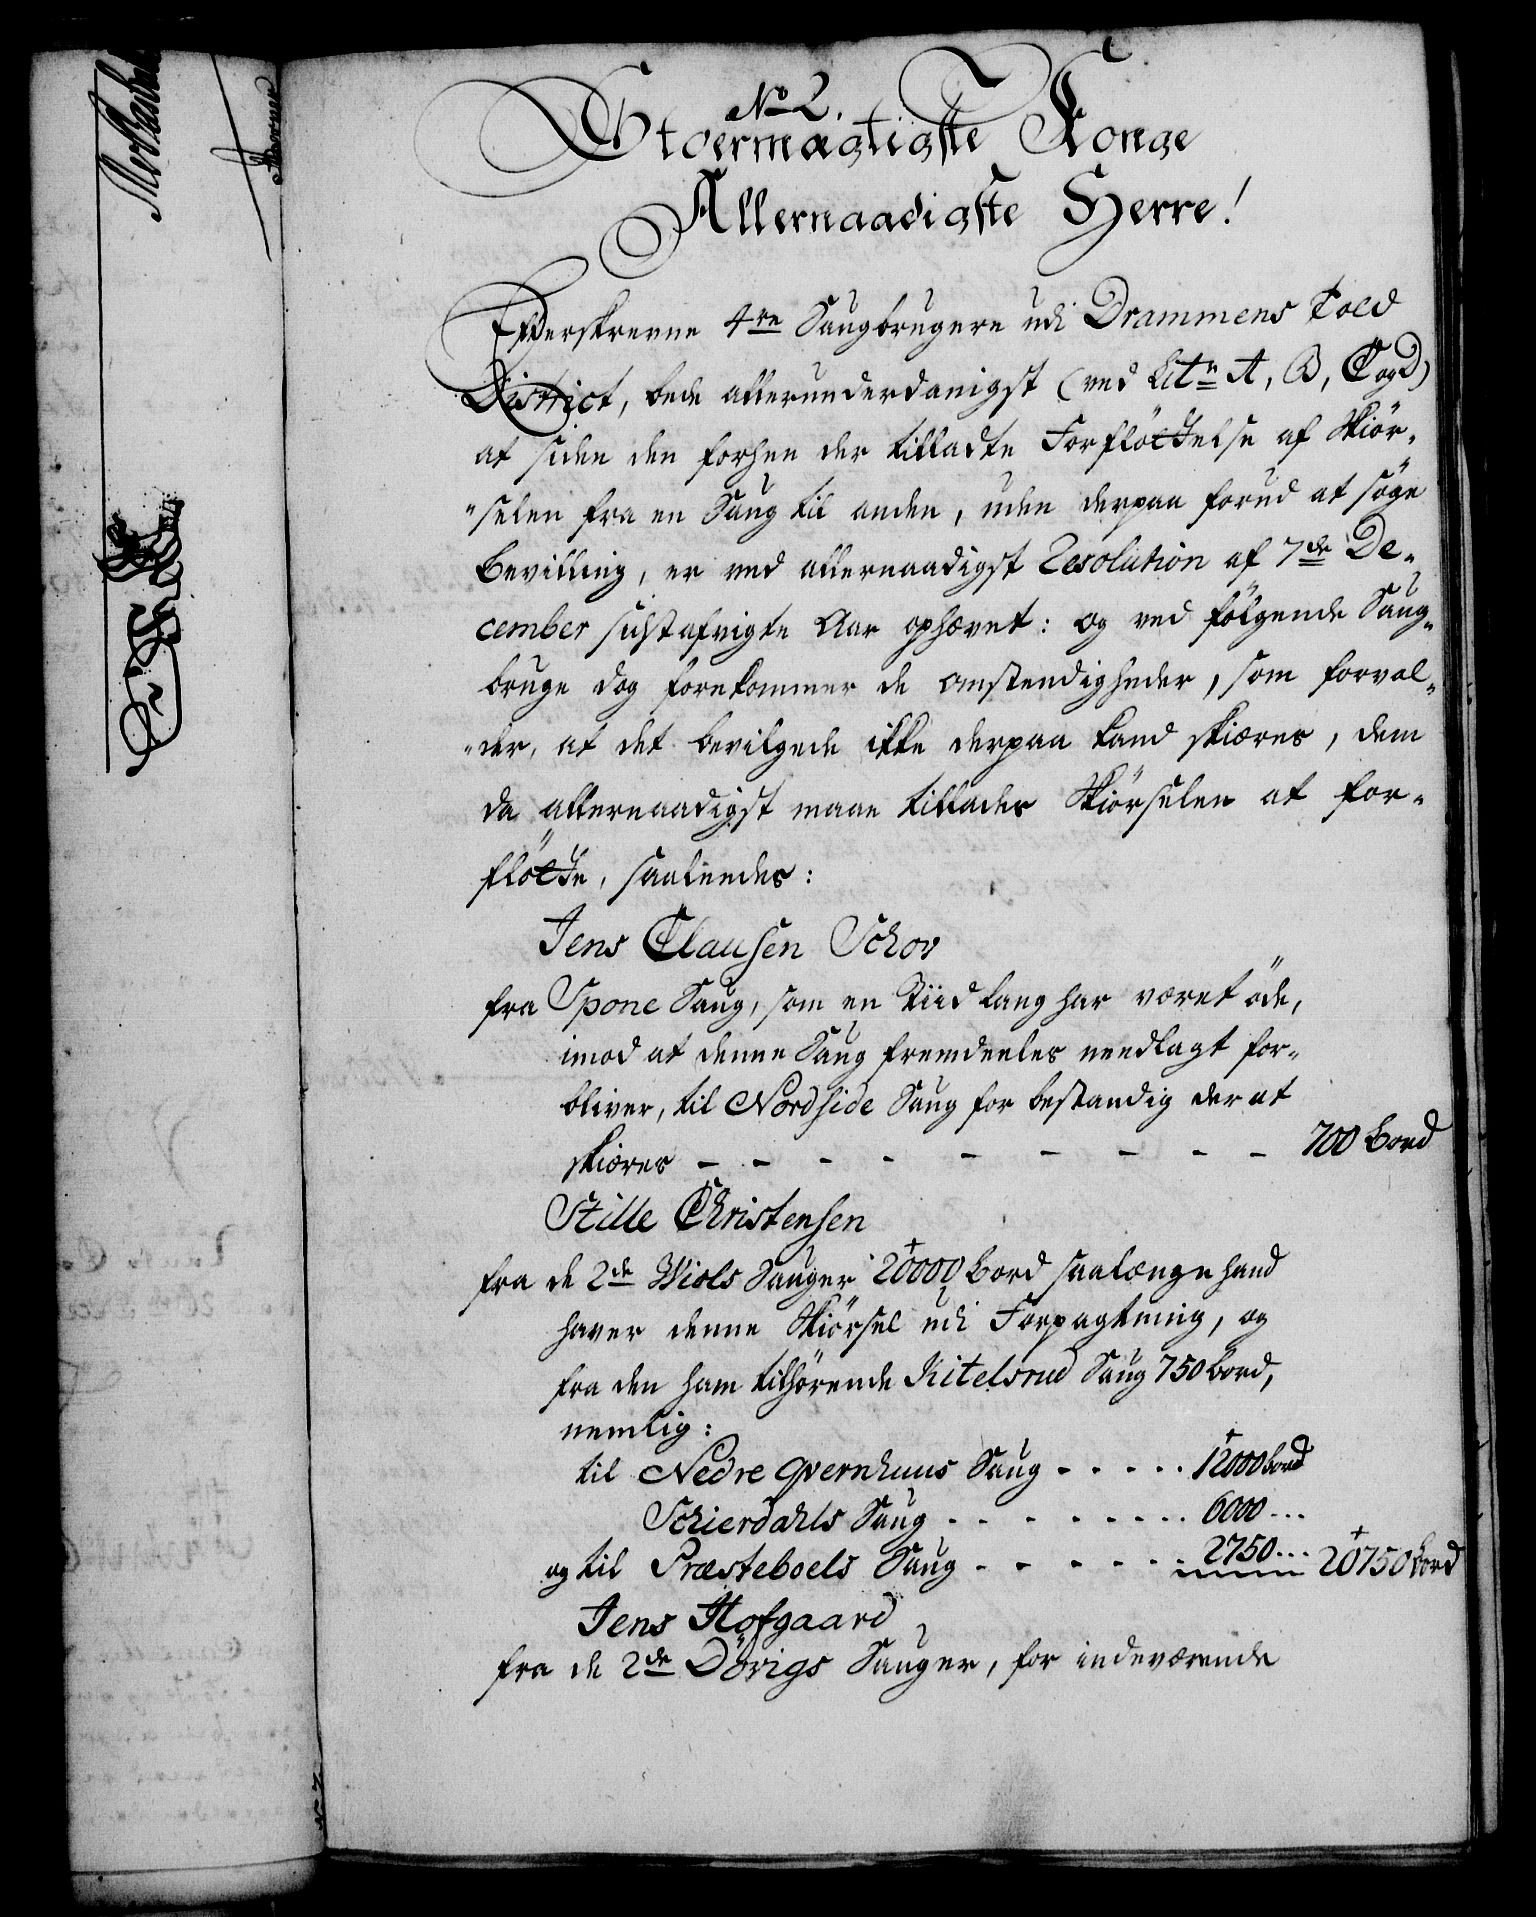 No 2.
Stoermægtigste Konge
Allernaadigste Herre!
Efterskrevne 4re Saugbrugere udi Drammens Told
District, bede allerunderdanigst (ved Litr A, B, C og D)
at siden den forhen der tilladte Forfløttelse af Skiör-
"selen fra en Saug til anden, uden derpaa forud at søge
Bevilling, er ved allernaadigst Resolution af 7de De-
cember sidstafvigte Aar ophævet: og ved følgende Saug-
bruge dog forekommer de omstendigheder, som forvol-
"der, at det bevilgede ikke derpaa kand skiæres, dem
da allernaadigst maae tillades Skiörselen at for-
fløtte, saaleedes:
Jens Clausen Schov
fra Spone Saug, som en Tiid lang har været öde,
imod at denne Saug fremdeeles needlagt for-
bliver, til Nordside Saug for bestandig der at
skiæres - - - - - - - - - 700 Bord
Stille Christensen
fra de 2de Wiols Sauger 20000 Bord saalænge hand
haver denne Skiörsel udi Forpagtning, og
fra den ham tilhörende Kitelsrud Saug 750 Bord,
nemlig:
til Nedre Qvernhuus Saug - - - - - 12000 Bord
Schierdahls Saug - - - - - - - - - 6000 ...
og til Præsteboels Saug - - - - - - - 2750 ... 20750 Bord
Jens Hofgaard
fra de 2de Dövigs Sauger, for indeværende